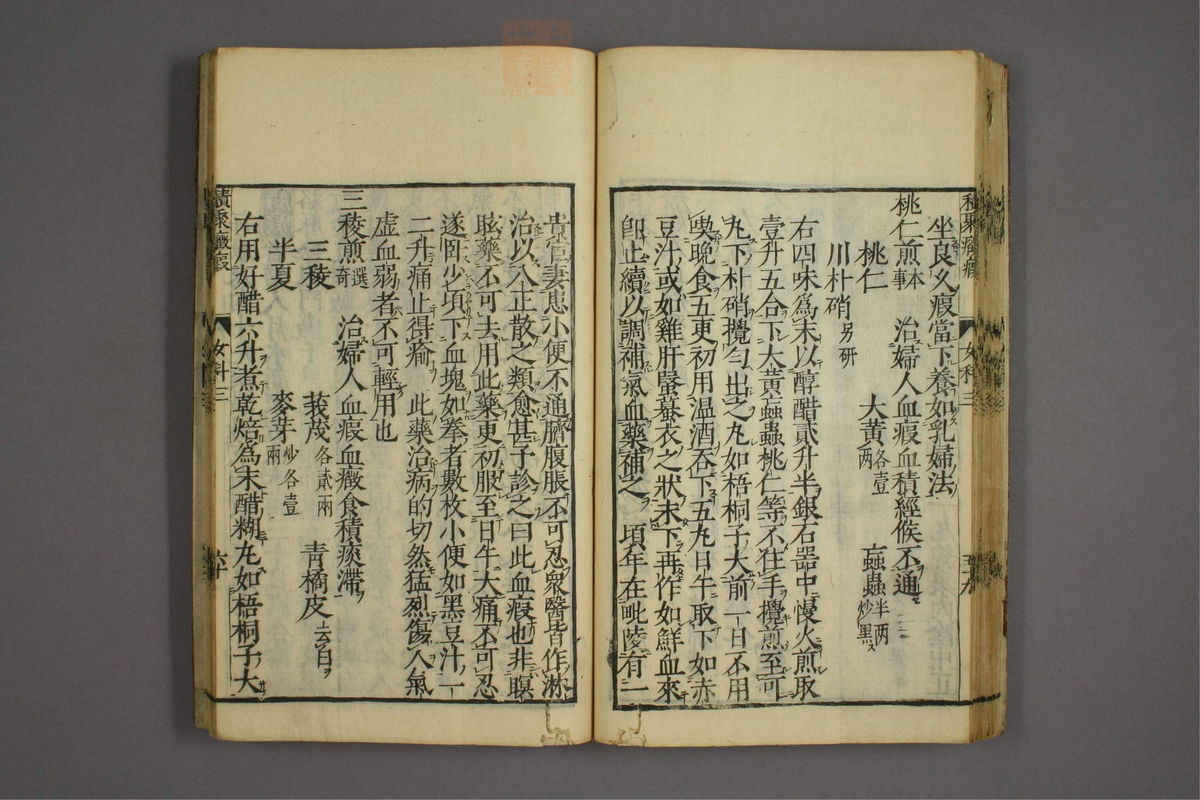 積聚癥瘕
女科三
五十九
坐良久瘕當下養如乳婦法
桃仁煎本事 治婦人血瘕血積經候不通
桃仁 大黃各壹兩 䖟蟲半兩炒黑
川朴硝另研
右四味為末以醇醋貳升半銀石器中慢火煎取
壹升五合下大黃䖟蟲桃仁等不住手攪煎至可
丸下朴硝攪勻出之丸如梧桐子大前一日不用
喫晚食五更初用溫酒吞下五丸日午取下如赤
豆汁或如雞肝蝦蟇衣之狀未下再作如鮮血來
即止續以調補氣血藥補之 頃年在毗陵有一
貴官妻患小便不通臍腹脹不可忍眾醫皆作淋
治以八正散之類愈甚予診之曰此血瘕也非瞑
眩藥不可去用此藥更初服至日午大痛不可忍
遂臥少頃下血塊如拳者數枚小便如黑豆汁一
二升痛止得瘉 此藥治病的切然猛烈傷人氣
虛血弱者不可輕用也
三稜煎選奇 治婦人血瘕血癥食積痰滯
三稜 莪茂各貳兩 青橘皮去白
半夏 麥芽炒各壹兩
右用好醋六升煮乾焙為末醋糊丸如梧桐子大
積聚癥瘕
女科三
六十